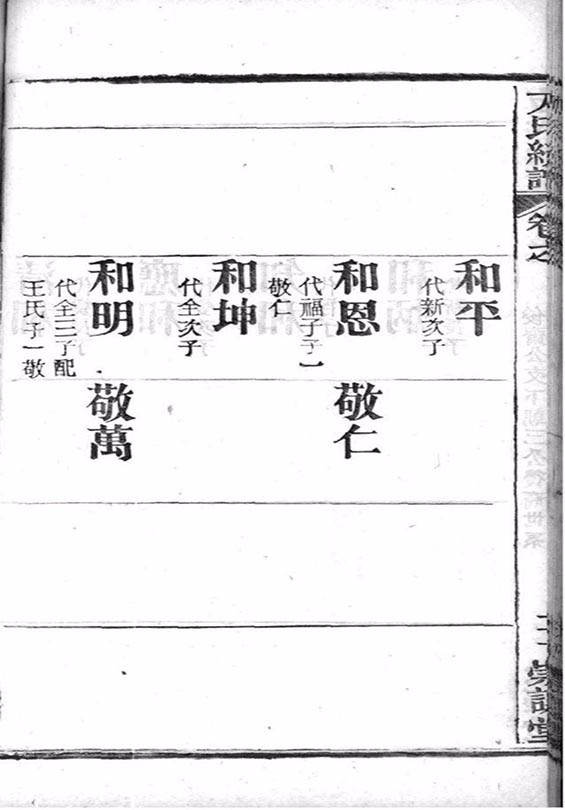 氏續譜
卷之
崇讓堂
和平
代新次子
和恩 敬仁
代福子子一
敬仁
和坤
代全次子
和明 敬萬
代全三子配
王氏子一敬